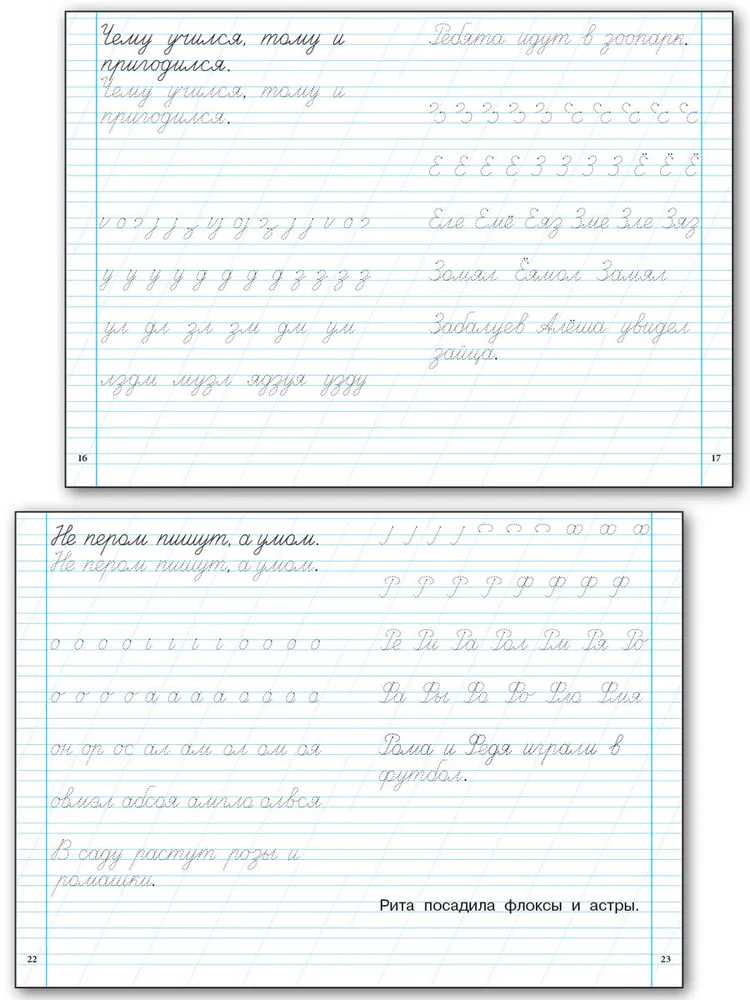 Чему учился, тому и
пригодился.
Чему учился, тому и
пригодился.
у у у у д д д д з з з з
ул дл зл зм дм ум
лздм музл ядзуя узду
16
Ребята идут в зоопарк.
Е Е Е Е З З З З Ё Ё Ё
Еле Емё Еяз Зме Зле Зяз
Зомял Ёямол Замял
Забалуев Алёша увидел
зайца.
17
Не пером пишут, а умом.
Не пером пишут, а умом.
о о о о а а а а о о о о
он ор ос ал ам ол ом оя
овмэл абсоя амгло олвся
В саду растут розы и
ромашки.
22
Р Р Р Р Ф Ф Ф Ф
Ре Ри Ра Рол Рм Ря Ро
Фа Фы Фо Фло
Рома и Федя играли в
футбол.
Рита посадила флоксы и астры.
23